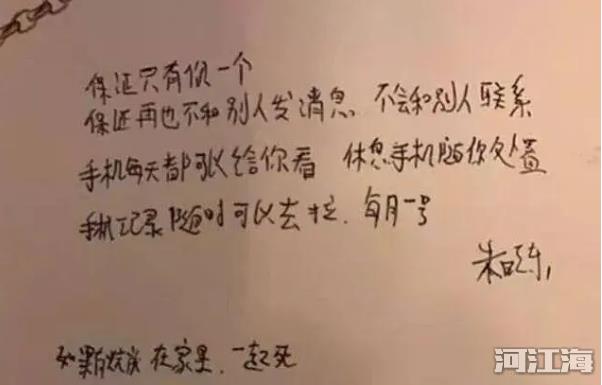 保证只有你一个
保证再也不和别人发消息 不会和别人联系
手机每天都可以给你看 休息手机随你处置
手机记录随时可以去拉. 每月一号
朱晓东
如果 在家里. 一起死
河江海